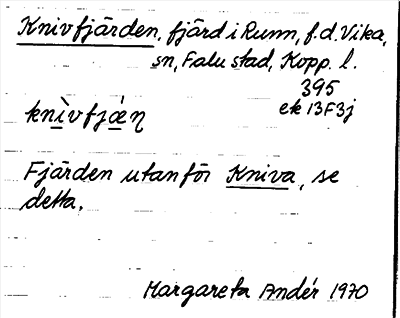 Knivfjärden, fjärd i Runn, f.d. Vika,
sn, Falu stad, Kopp. l.
395
ek 13F3j
knìvfjǽn̥
Fjärden utanför Kniva, se
detta.
Margareta Andér 1970